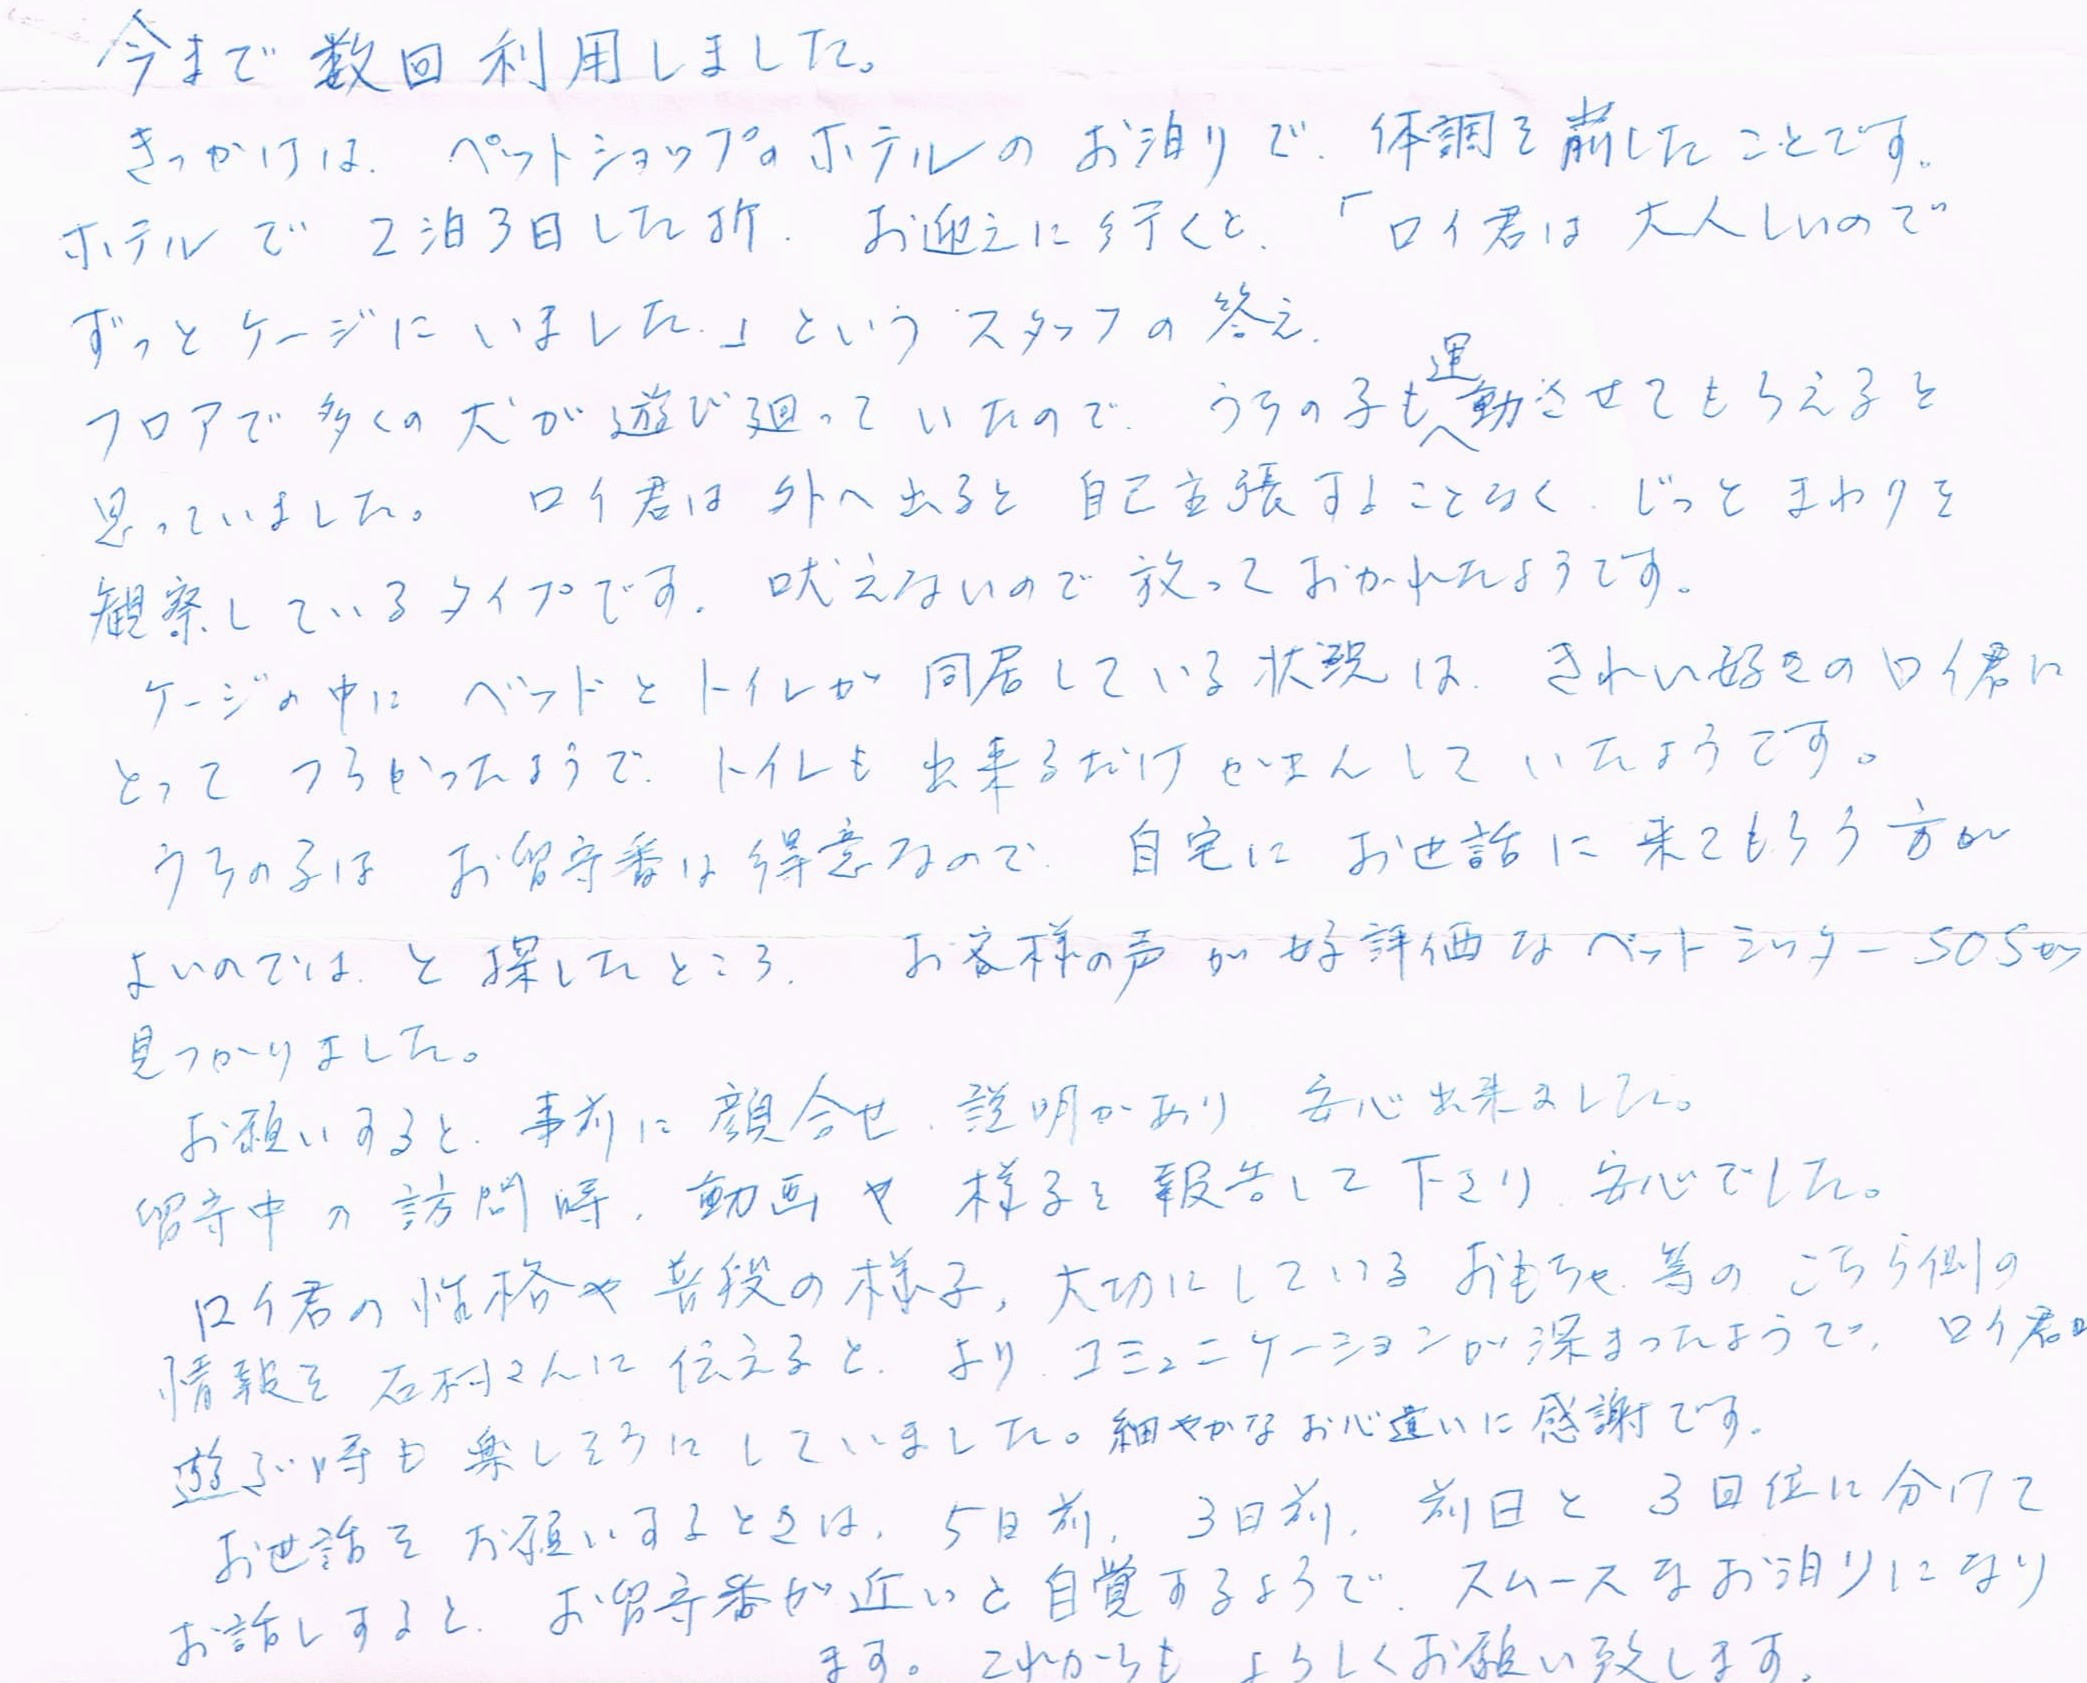 今まで数回利用しました。
きっかけは、ペットショップのホテルのお泊りで、体調を崩したことです。
ホテルで2泊3日した折、お迎えに行くと、「ロイ君は大人しいので
ずっとケージにいました。」というスタッフの答え、
フロアで多くの犬が遊び廻っていたので、うちの子も運動させてもらえると
思っていました。ロイ君は外へ出ると自己主張することなく、じっとまわりを
観察しているタイプです。吠えないので放っておかれたようです。
ケージの中にベッドとトイレが同居している状況は、きれい好きのロイ君に
とってつらかったようで、トイレも出来るだけがまんしていたようです。
うちの子はお留守番は得意なので、自宅にお世話に来てもらう方が
よいのでは、と探したところ、お客様の声が好評価なペットシッターSOSが
見つかりました。
お願いすると、事前に顔合せ、説明があり、安心出来ました。
留守中の訪問時、動画や様子を報告して下さり、安心でした。
ロイ君の性格や普段の様子、大切にしているおもちゃ等のこちら側の
情報を石村さんに伝えると、よりコミュニケーションが深まったようで、ロイ君の
遊ぶ時も楽しそうにしていました。細やかなお心遣いに感謝です。
お世話をお願いするときは、5日前、3日前、前日と3回位に分けて
お話しすると、お留守番が近いと自覚するようで、スムースなお泊りになり
ます。これからもよろしくお願い致します。